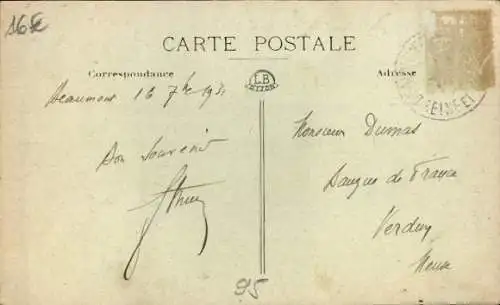 16€
CARTE POSTALE
Correspondance
LB
Adresse
Beaumont 16 7bre 193
Bon souvenir
Monsieur Dumas
Banque de France
Verdun
Meuse
95